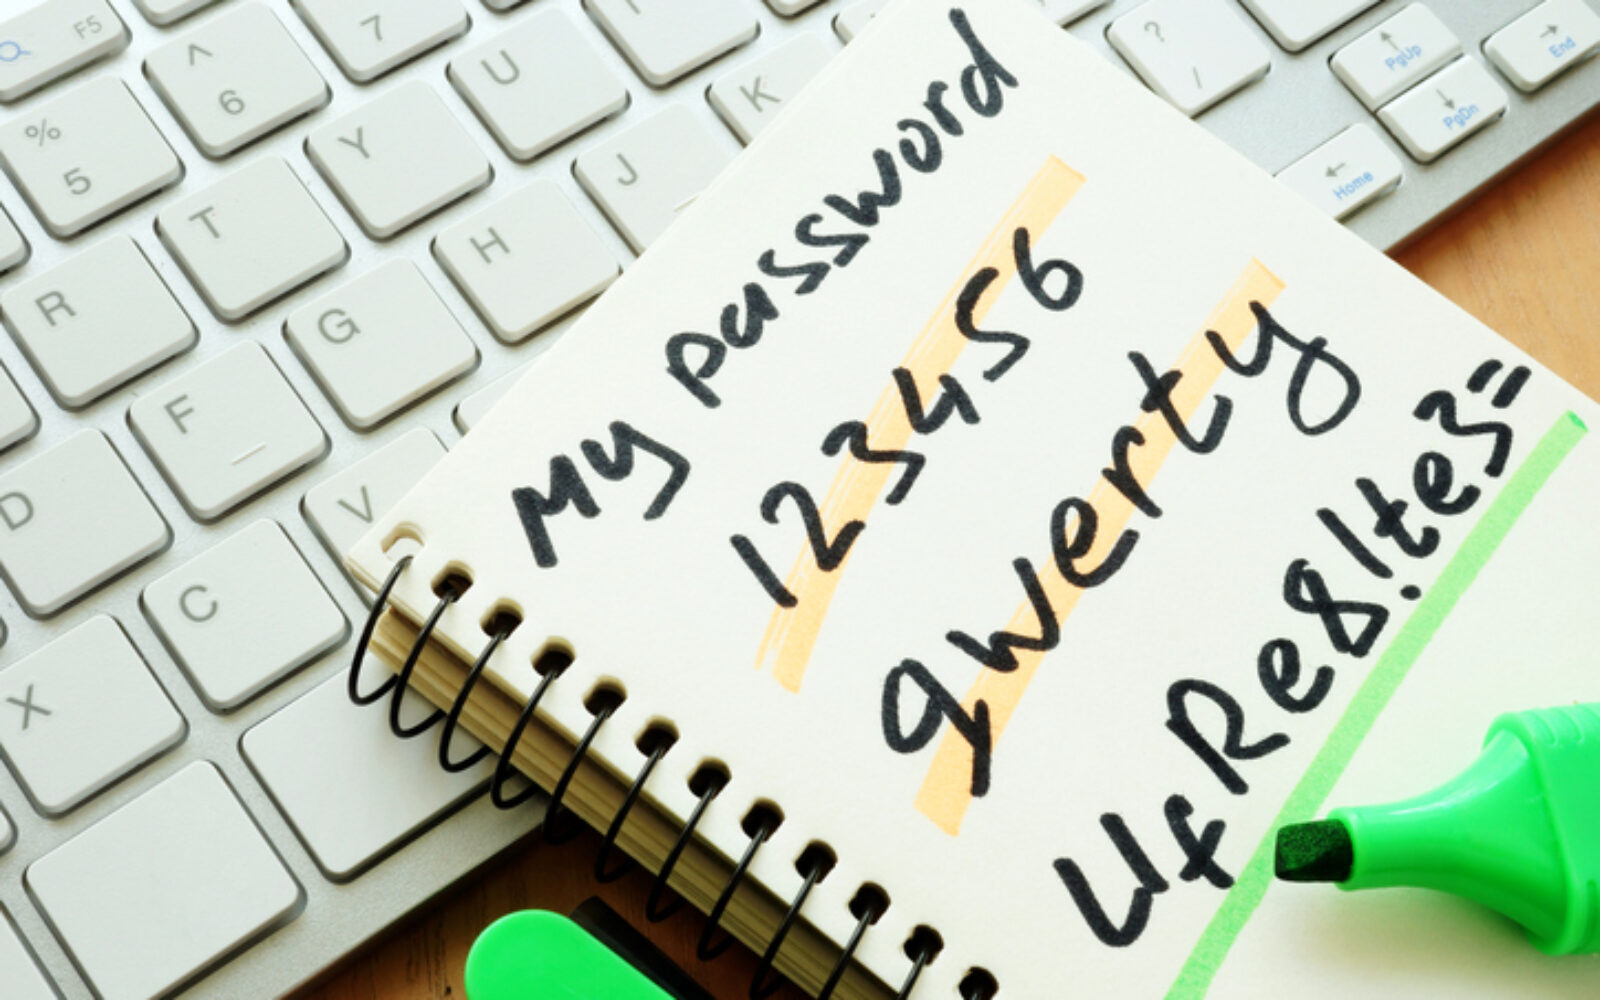 F5
% 5 ^ 6 7
R T Y U
D F G H J K
X C V
? /
↑ PgUp
→ End
↓ PgDn
← Home
My password
123456
qwerty
4fRe8!te3=